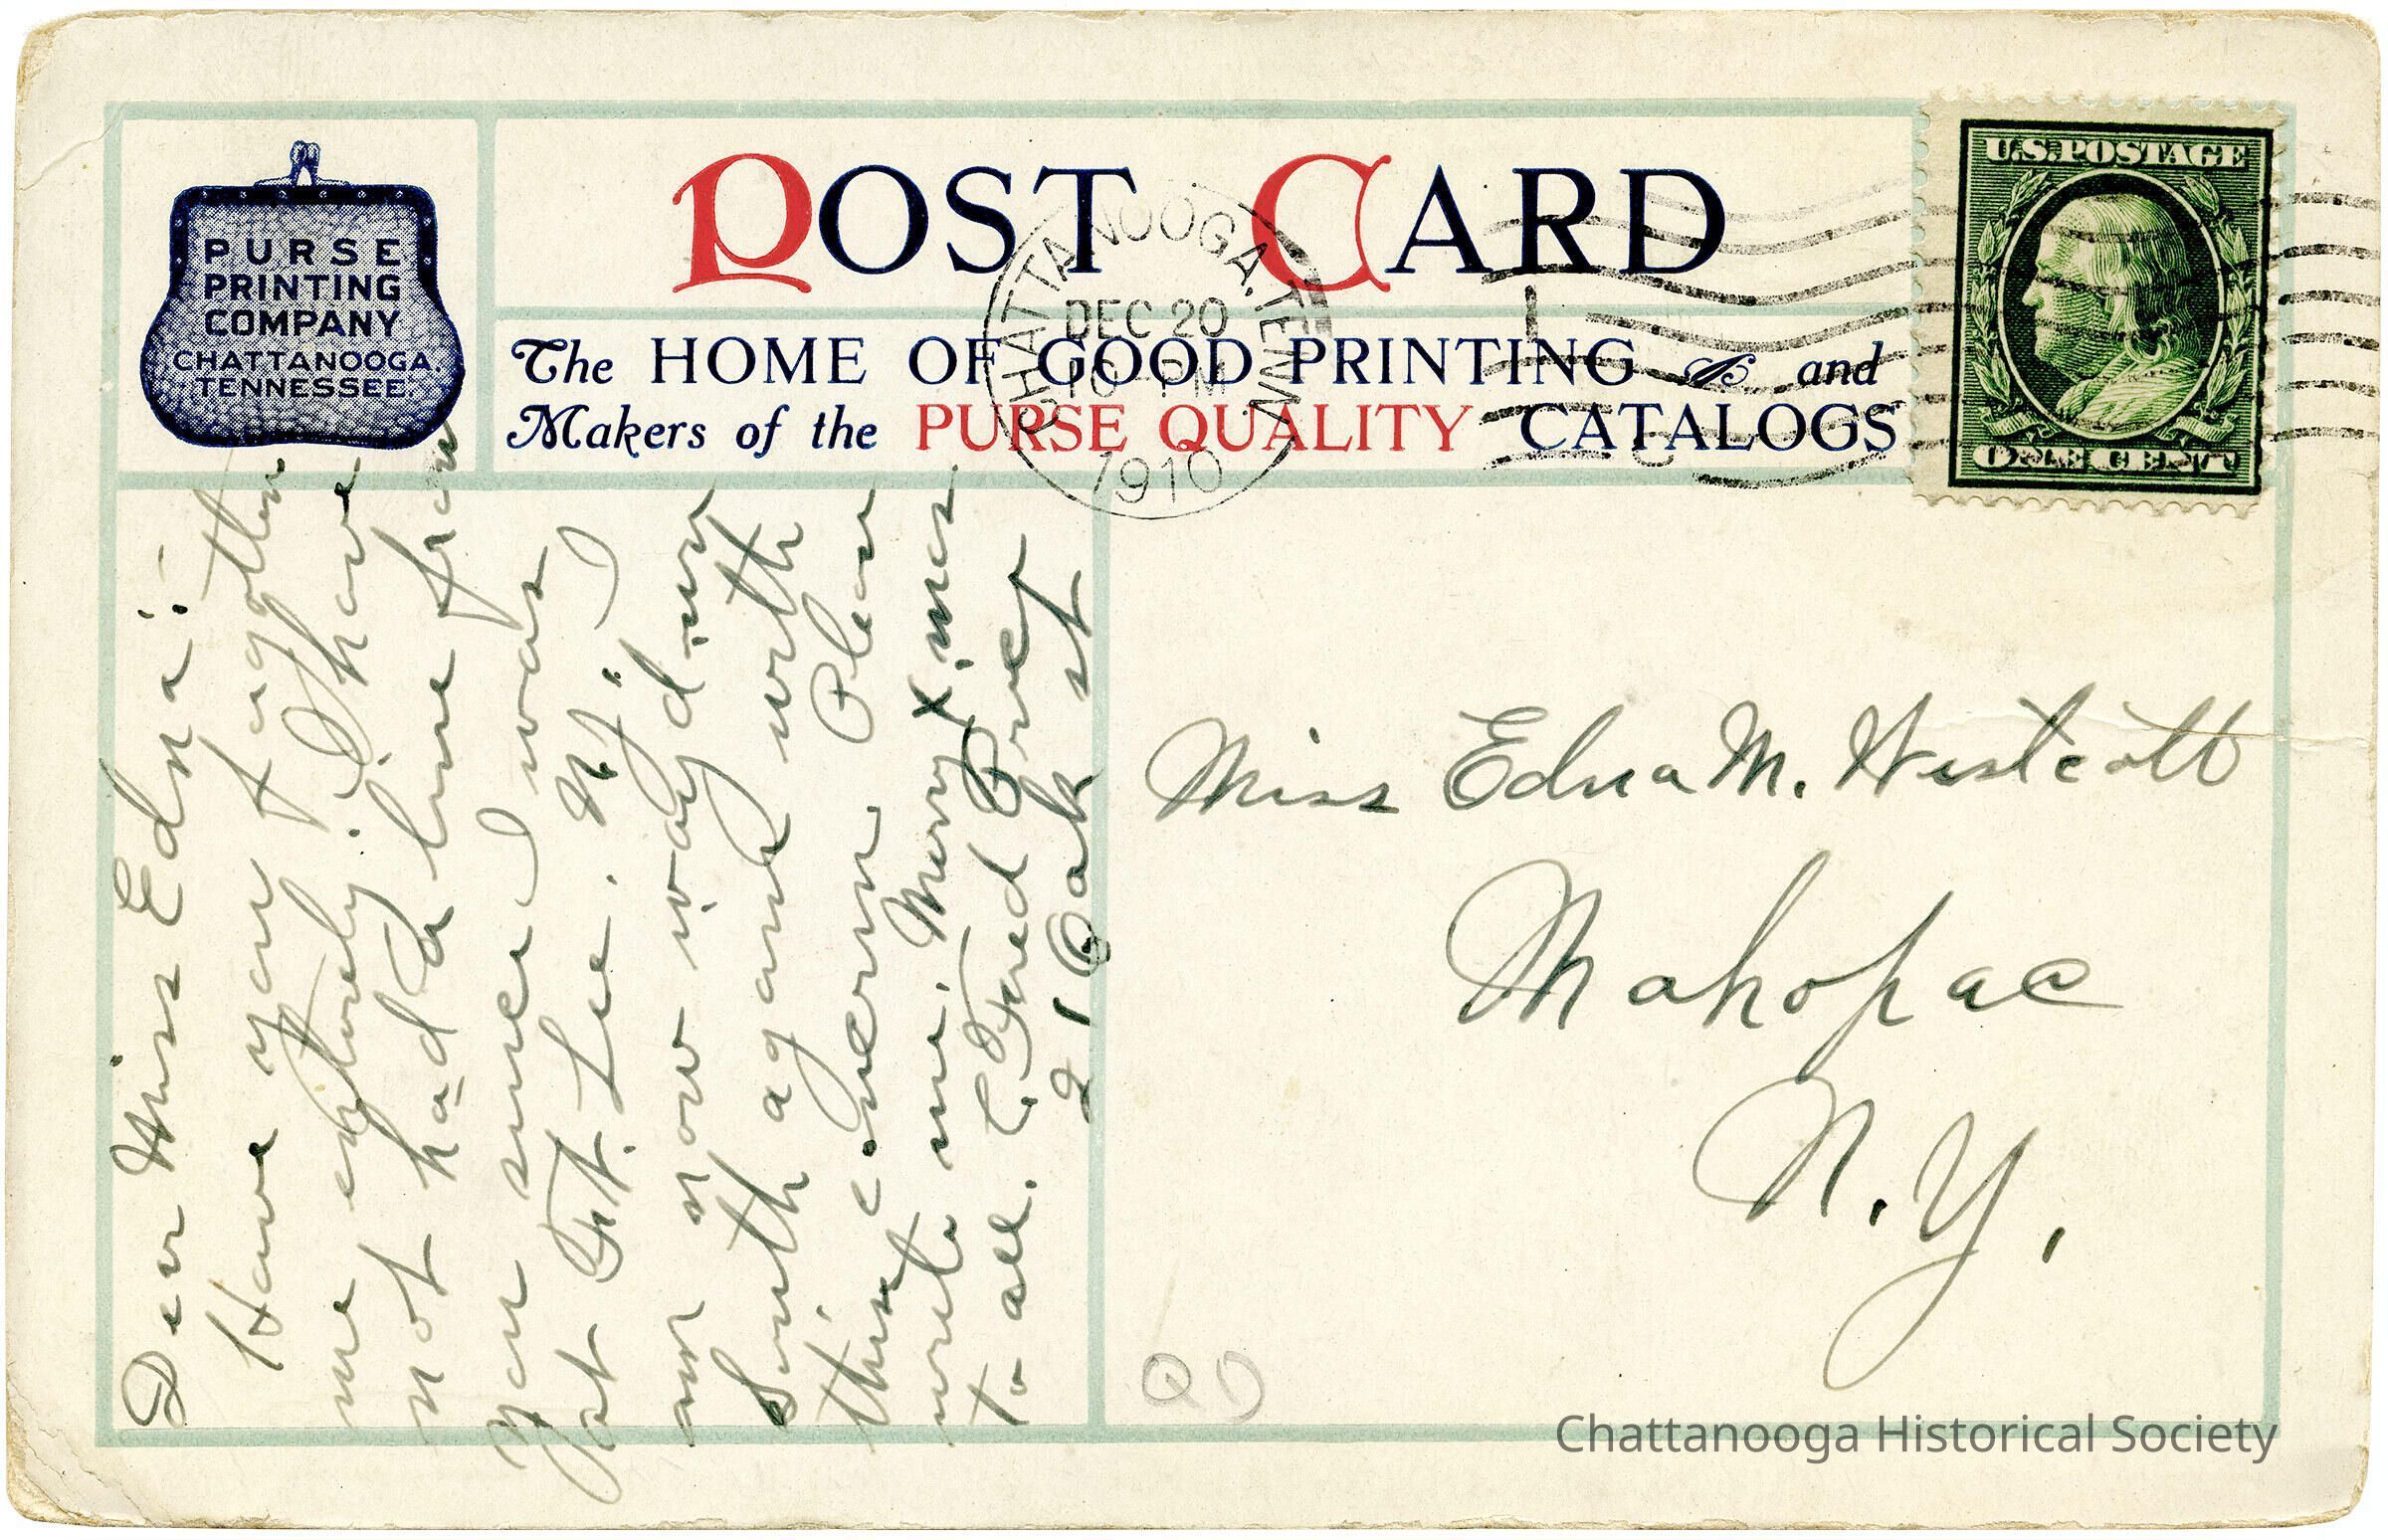 PURSE
PRINTING
COMPANY
CHATTANOOGA.
TENNESSEE.
POST CARD
The HOME OF GOOD PRINTING and
Makers of the PURSE QUALITY CATALOGS
U.S. POSTAGE
ONE CENT
CHATTANOOGA. TENN.
DEC 20
10 - PM
1910
Dear Miss Edna:-
Have you forgotten
me entirely? I have
not had a line from
you since I was
at Ft. Lee. N.J.
am now way down
South again with
this concern. Please
write me. Merry Xmas
to all. C. Fred
210 Oak St
Miss Edna M. Westcott
Mahopac
N.Y.
Chattanooga Historical Society